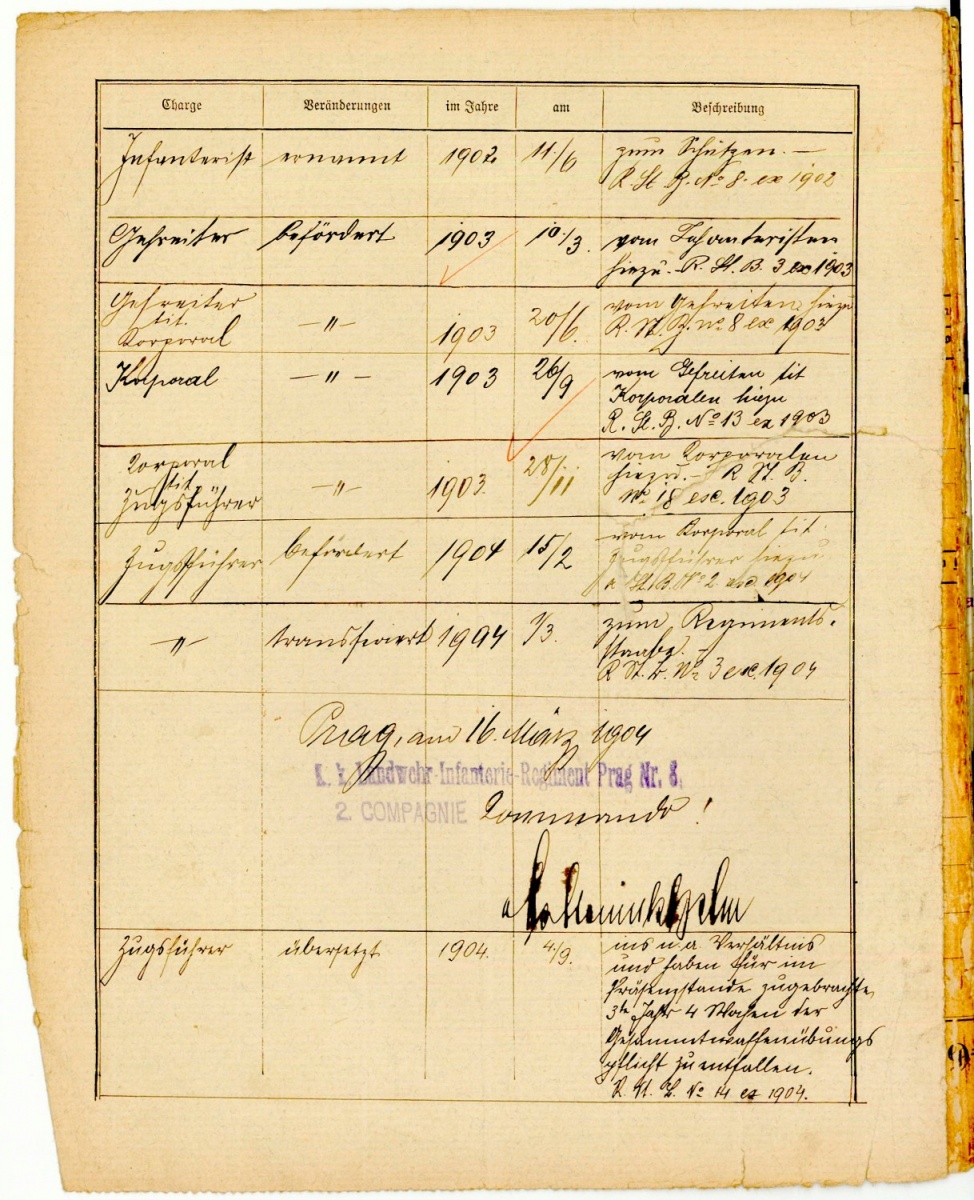 Charge Veränderungen im Jahre am Beschreibung
Infanterist ernannt 1902 11./6 zum Schützen. —
R. St. B. No 8. ex 1902
Gefreiter befördert 1903 10./3. vom Infanteristen
hiezu. R. St. B. 3 ex 1903
Gefreiter
tit.
Korporal
—"— 1903 20/6. vom Gefreiten hiezu
R. St. B. No 8 ex 1903
Korporal —"— 1903 26/9 vom Gefreiten tit
Korporalen hiezu
R. St. B. No 13 ex 1903
Korporal
tit.
Zugsführer
—"— 1903. 28/11 vom Korporalen
hiezu. — R St. B.
No 18 ex. 1903
Zugsführer befördert 1904 15/2 vom Korporal tit.
Zugsführer hiezu
R. St. B. No 2 ex 1904
—"— transferiert 1904 1/3. zum Regiments-
stabe. —
R St. B. No 3 ex. 1904
Prag, am 16. März 1904
K. k. Landwehr-Infanterie-Regiment Prag Nr. 8.
2. COMPAGNIE Commando!
Zugsführer übersetzt 1904. 4/9. ins n. a. Verhältnis
und haben für im
Präsenzstande zugebrachte
3te Jahr 4 Wochen der
Gesammtwaffenübungs
pflicht zu entfallen.
R. St. B. No 14 ex 1904.